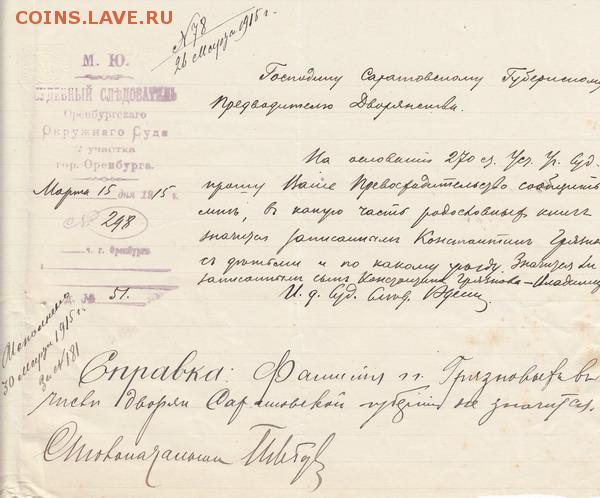 COINS.LAVE.RU
№ 78
26 Марта 1915 г.
М. Ю.
СУДЕБНЫЙ СЛѢДОВАТЕЛЬ
Оренбургскаго
Окружнаго Суда
участка
гор. Оренбурга.
Марта 15 дня 1915 г.
№ 298
ч. г. Оренбургъ
д. № 51.
Исполнено
30 Марта 1915 г.
за № 181
Господину Саратовскому Губернскому
Предводителю Дворянства.
На основаніи 270 ст. Уст. Уг. Суд.
прошу Ваше Превосходительство сообщить
мнѣ, въ какую часть родословныхъ книгъ
значится записаннымъ Константинъ
съ дѣтьми и по какому уѣзду. Значится ли
записаннымъ сынъ Константина Грязнова-Владиміръ
И. д. Суд. Слѣд.
Справка: Фамилія г. г. Грязновыхъ въ
числѣ дворянъ Саратовской губерніи не значится.
Столоначальникъ